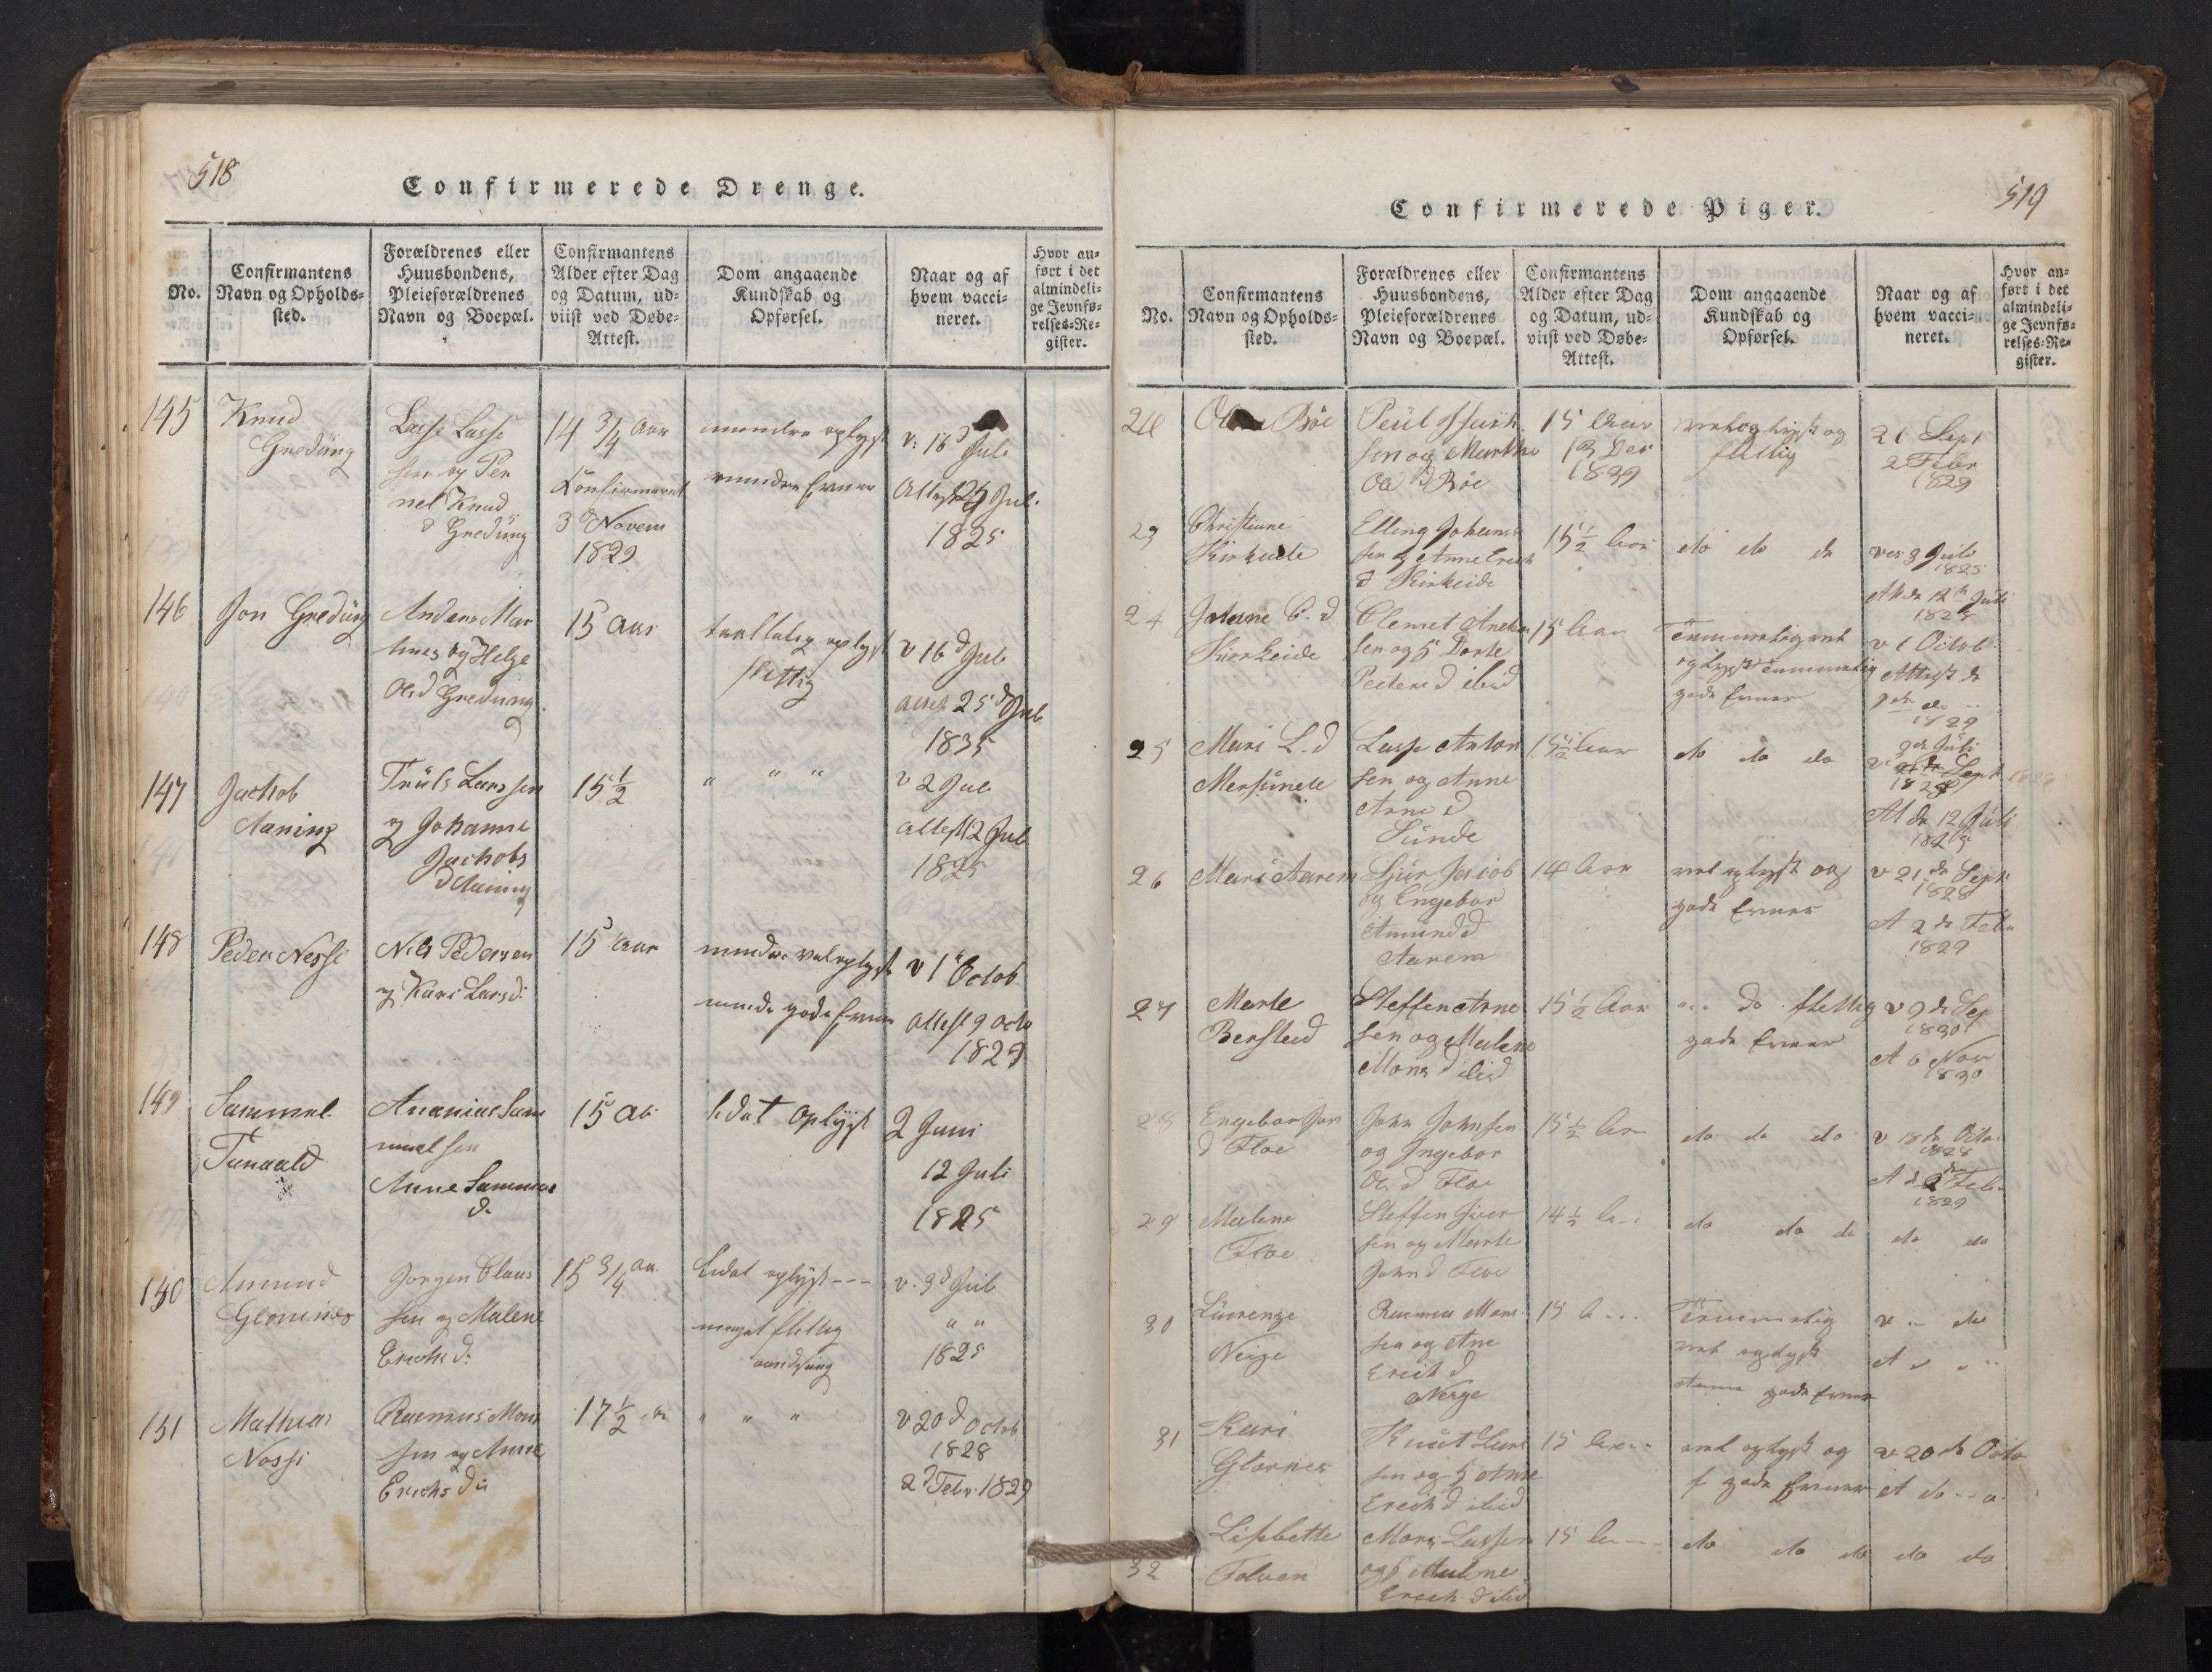 518
Confirmerede Drenge.
No.
Confirmantens
Navn og Opholds-
sted.
Forældrenes eller
Huusbondens,
Pleieforældrenes
Navn og Boepæl.
Confirmantens
Alder efter Dag
og Datum, ud-
viist ved Døbe-
Attest.
Dom angaaende
Kundskab og
Opførsel.
Naar og af
hvem vacci-
neret.
Hvor an-
ført i det
almindeli-
ge Jevnfø-
relses-Re-
gister.
145
Knud
Gredung
Lasse Lasse
sen og Per
nel Knud
d Gredung
14 3/4 Aar
Confirmeret
3 Novem
1829
mindre oplyst
mindre Evner
v: 16 d Juli
Attest 25 Jul.
1825
146
Jon Gredung
Anders Mar
og Helge
Ols d Gredung
15 Aar
oplyst
flittig
v 16 d Jul
attest 25 d Jul
1835
147
Jachob
Aaning
Truls Larssen
og Johanne
Jachobs
d Aaning
15 1/2
" " "
v 2 Jul
attest 12 Jul
1825
148
Peder Nessi
Nils Pedersen
og Kari Larsd:
15 Aar
mindre vel oplyst
gode Evner
v 1 Octob
attest 9 Octo
1829
149
Sammel
Ananias Sam
muel sen
Anne Sammu
d.
15 Aa
lidet oplyst
2 Juni
12 Juli
1825
150
Amund
Glomnes
Jørgen Claus
sen og Malene
Erichs d:
15 3/4 Aa
Lidet oplyst ---
meget flittig
v. 3 d Jul
" "
1825
151
Mathias
Nossi
Rasmus Mons
sen og Anne
Erichs d:
17 1/2
" " "
v 20 d Octob
1828
2 d Febr. 1829
519
Confirmerede Piger.
No.
Confirmantens
Navn og Opholds-
sted.
Forældrenes eller
Huusbondens,
Pleieforældrenes
Navn og Boepæl.
Confirmantens
Alder efter Dag
og Datum, ud-
viist ved Døbe-
Attest.
Dom angaaende
Kundskab og
Opførsel.
Naar og af
hvem vacci-
neret.
Hvor an-
ført i det
almindeli-
ge Jevnfø-
relses-Re-
gister.
Böe
Peül
sen og Marthe
Ole d Böe
15 Aar
13 Des
1829
vel oplyst og
flittig
21 Sept
2 Febr
1829
23
Christiane
Kirkeide
Elling Johans
sen og Anne Erich
d Kirkeide
15 1/2 Aar
do do do
vac 3 Juli
1825
At d 12 Juli
1825
24
C. d
Kirkeide
Clemet Anders
sen og Dorte
Peders d ibid
15 Aar
Temmelig vel
oplyst Temmelig
gode Evner
v 1 Octob
Attest d
9 do
1829
25
Mari L. d
Mersunde
Lasse Anton
sen og Anne
Arne d
Sunde
15 1/2 Aar
do do do
v
Sept
1828
At d 12 Juli
1825
26
Mari Aarem
Sjur Jacob
og Engebor
Amund d
Aarem
14 Aar
vel oplyst og
gode Evner
v 21 de Sept
1828
A 2 d Feb
1829
27
Marte
Berstad
Steffen Arne
sen og Malene
Mons d ibid
15 1/2 Aar
do flittig
gode Evner
v 9 d Sep
1830
A 6 Nov
1830
28
Engebor Jon
d Floe
John Johnsen
og Ingebor
Ole d Floe
15 1/2 Aar
do do do
v 18 d Octo
1828
A d 2 Feb
1829
29
Malene
Floe
Steffen Iver
sen og Marte
John d Floe
14 1/2 A
do do do
do do
30
Laurenze
Neige
Rasmus Mons
sen og Ane
Erich d
Neige
15 A
Temmelig
vel oplyst
gode Evner
v " do
A " "
31
Kari
Glomnes
Knut Lars
sen og Anne
Erich d ibid
15 Aar
vel oplyst og
f gode Evner
v 20 d Octo
A do
32
Lisbette
Folven
Mons Lassen
og Malene
Erich d ibid
15 A
do do do
do do